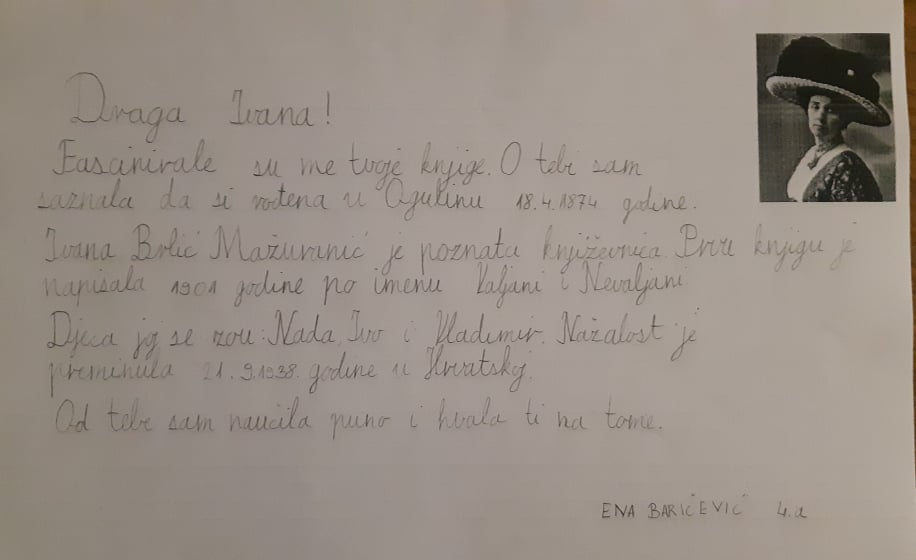 Draga Ivana!
Fascinirale su me tvoje knjige. O tebi sam
saznala da si rođena u Ogulinu 18.4.1874 godine.
Ivana Brlić Mažuranić je poznata književnica. Prvu knjigu je
napisala 1901 godine po imenu Valjani i Nevaljani
Djeca joj se zovu: Nada, Ivo i Vladimir. Nažalost je
preminula 21.9.1938. godine u Hrvatskoj.
Od tebe sam naučila puno i hvala ti na tome.
ENA BARIČEVIĆ 4.a